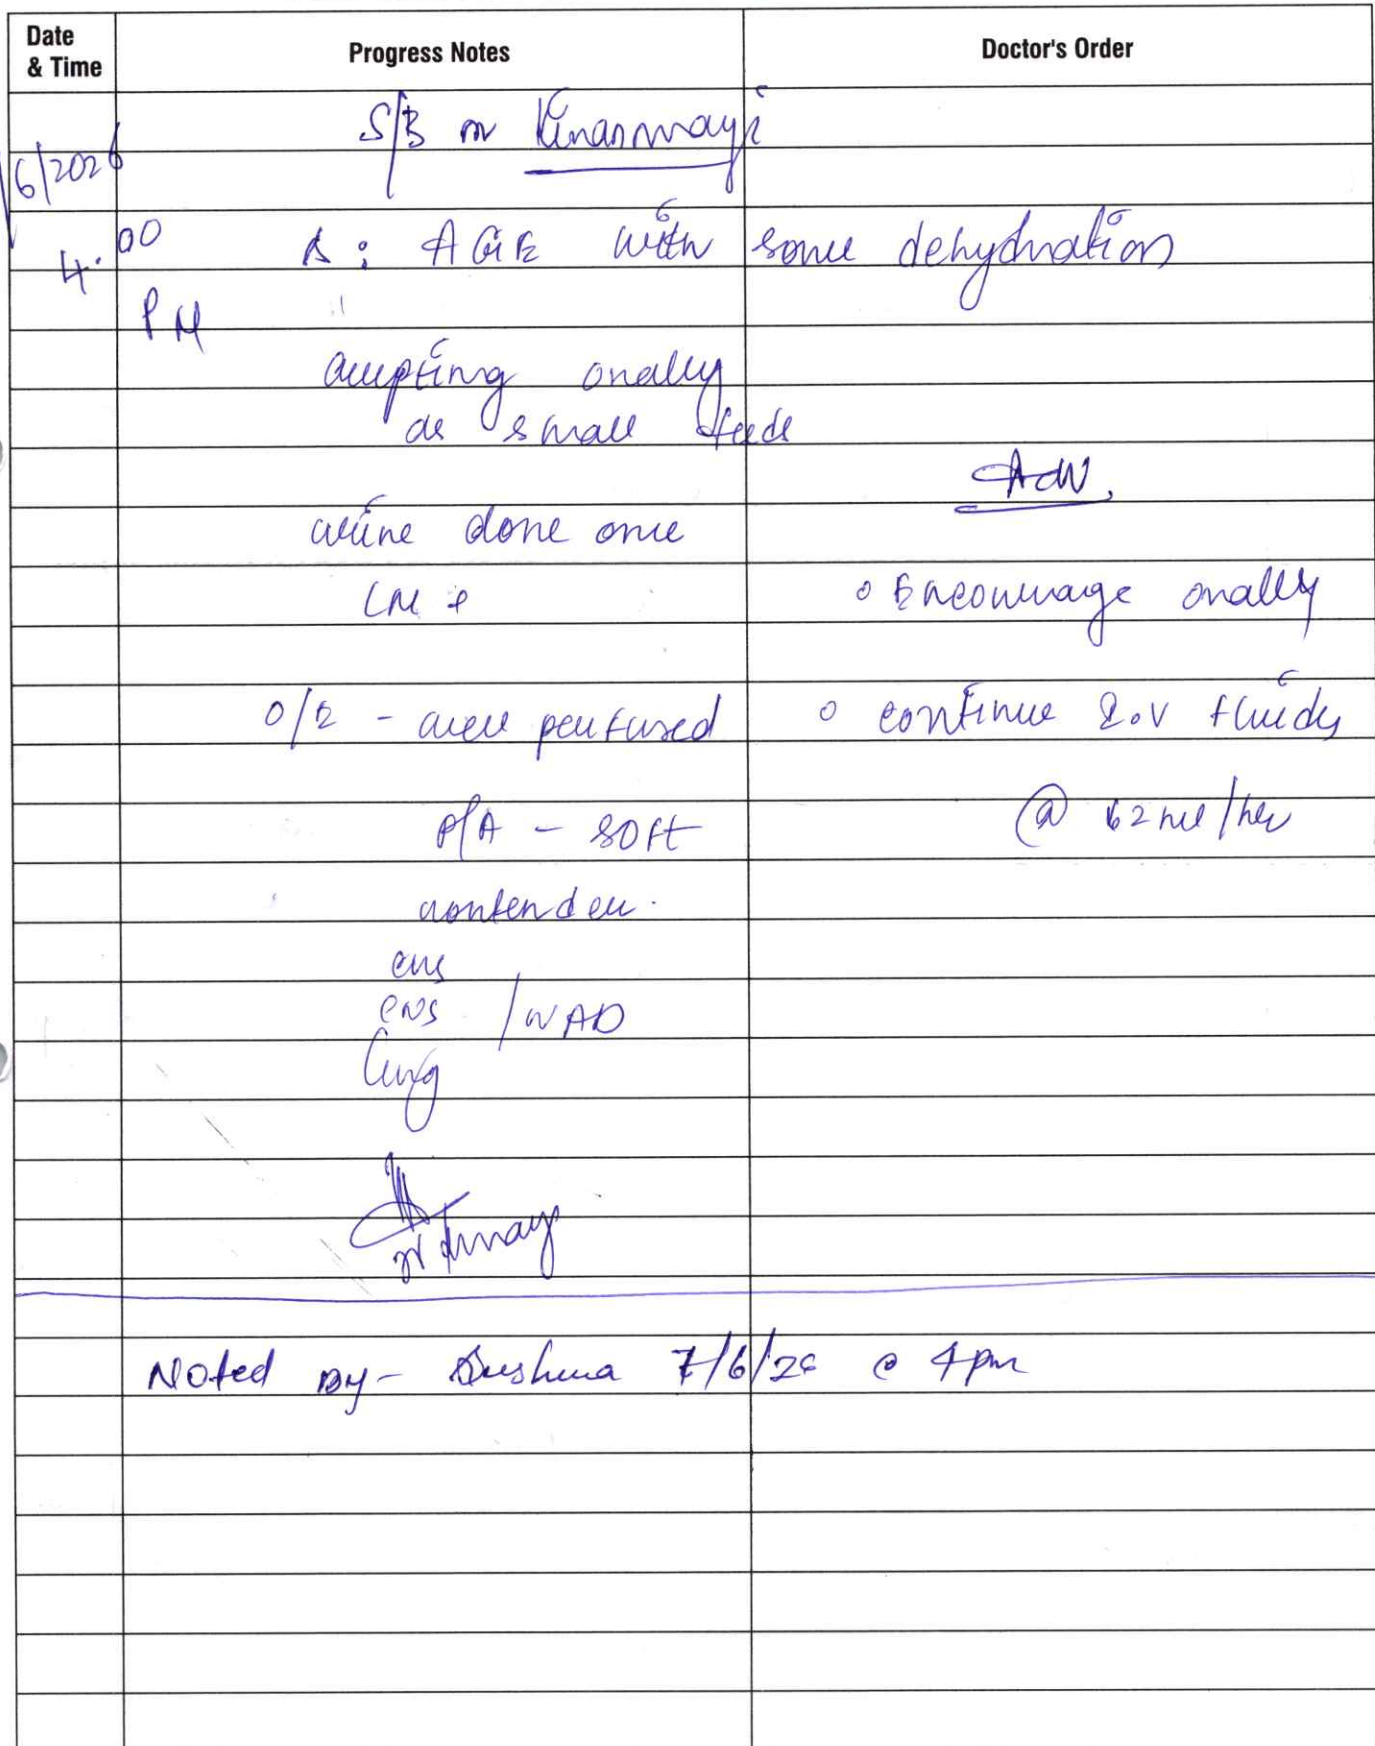 Date & Time
Progress Notes
Doctor's Order
S/B Dr
6/2026
4.00 PM
Δ: AGE with some dehydration
accepting orally
as small feeds
Adv.
urine done once
o Encourage orally
O/E - well perfused
o continue I.V fluids
P/A - soft
@ 62 ml/hr
nontender.
CVS
CNS / NAD
Lung
Noted By - Sushma 7/6/26 @ 4pm